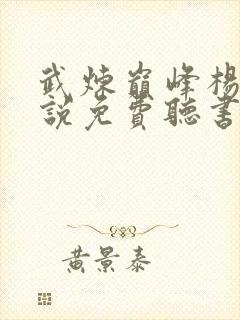 武煉巔峰楊
說免費聽書
黃景泰